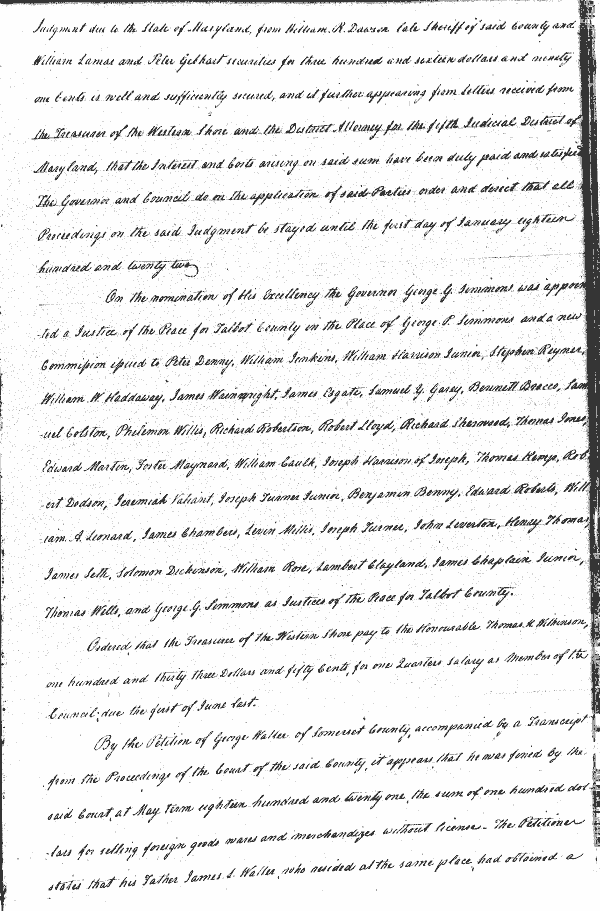 Judgment due to the State of Maryland, from William R. Dawson late Sheriff of said County and
William Lamas and Peter Gelhart securities for three hundred and sixteen dollars and ninety
one Cents is well and sufficiently secured, and it further appearing from letters received from
the Treasurer of the Western Shore and the District Attorney for the fifth Judicial District of
Maryland, that the Interest and Costs arising on said sum have been duly paid and satisfied
The Governor and Council do on the application of said Parties order and direct that all
Proceedings on the said Judgment be stayed until the first day of January eighteen
hundred and twenty two
On the nomination of His Excellency the Governor George G. Simmons was appoin
-ted a Justice of the Peace for Talbot County in the Place of George P. Simmons and a new
Commission issued to Peter Denny, William Jenkins, William Harrison Junior, Stephen Reyner,
William W. Haddaway, James Wainwright, James Esgate, Samuel Y. Garey, Bennett Bracco, Sam
-uel Colston, Philemon Willis, Richard Robertson, Robert Lloyd, Richard Sherwood, Thomas Jones,
Edward Martin, Foster Maynard, William Caulk, Joseph Harrison of Joseph, Thomas Kemp, Rob-
-ert Dodson, Jeremiah Valiant, Joseph Turner Junior, Benjamin Benny, Edward Roberts, Will
-iam A. Leonard, James Chambers, Levin Millis, Joseph Turner, John Leverton, Henry Thomas,
James Seth, Solomon Dickinson, William Rose, Lambert Clayland, James Chaplain Junior,
Thomas Wells, and George G. Simmons as Justices of the Peace for Talbot County.
Ordered that the Treasurer of the Western Shore pay to the Honourable Thomas H. Wilkinson,
one hundred and thirty three Dollars and fifty Cents, for one Quarters Salary as Member of the
Council due the first of June last.
By the Petition of George Waller of Somerset County, accompanied by a Transcript
from the Proceedings of the Court of the said County, it appears that he was fined by the
said Court, at May term eighteen hundred and twenty one, the sum of one hundred dol
-lars for selling foreign goods wares and merchandizes without license - The Petitioner
states that his Father James S. Waller, who resided at the same place, had obtained a